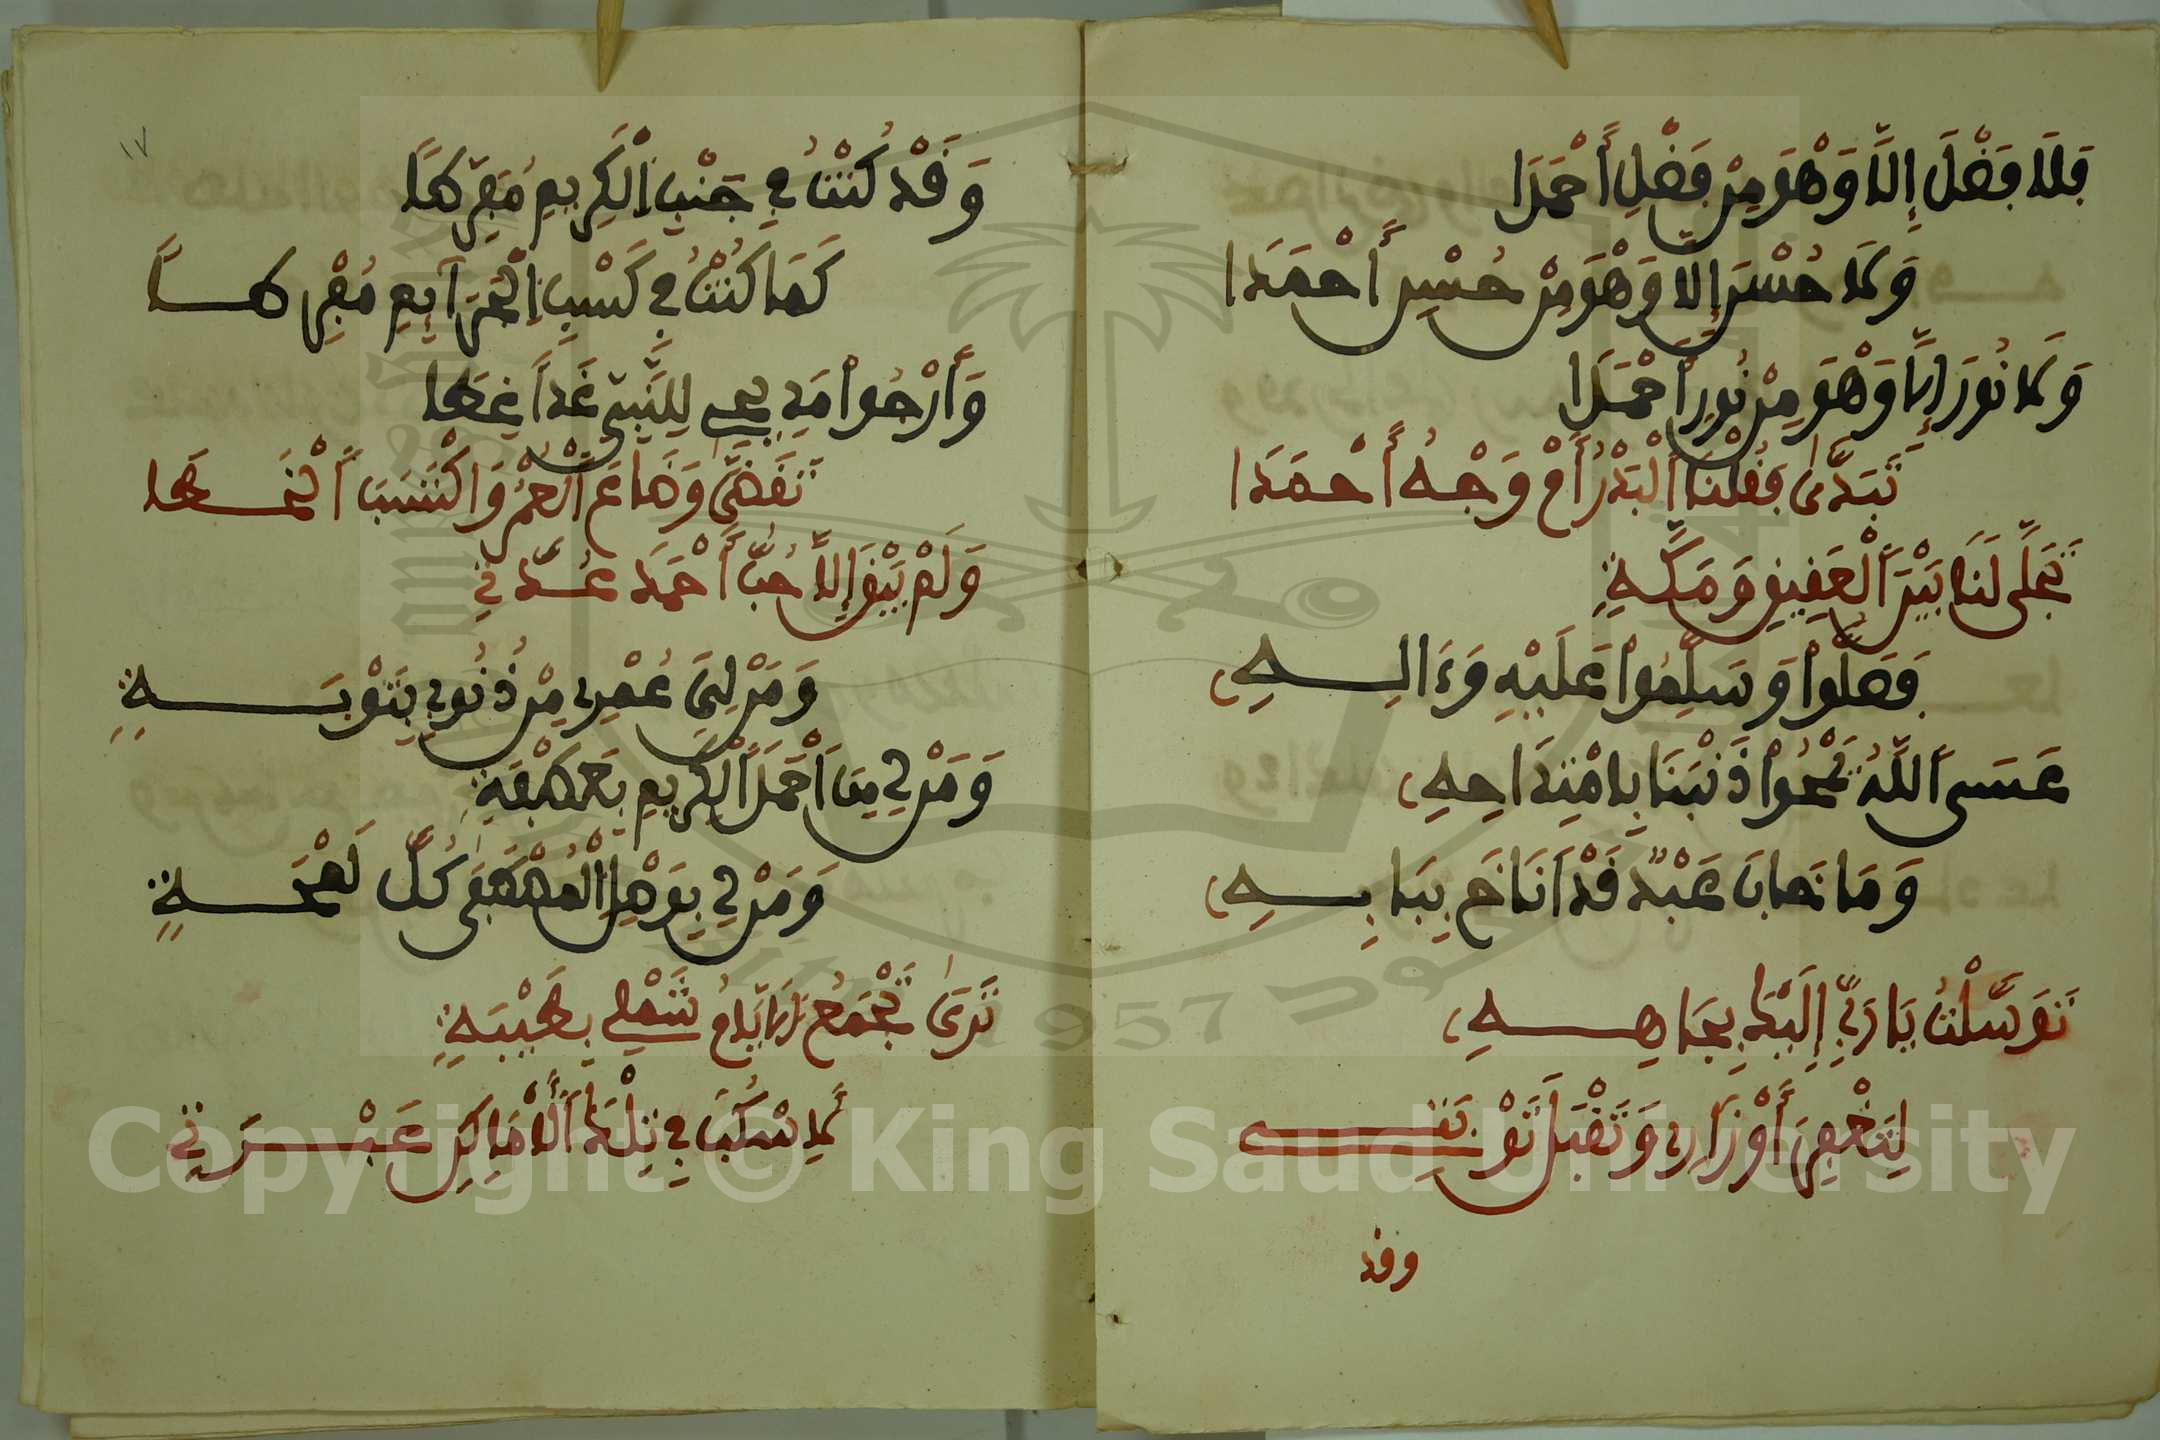 فَلَا فَضْلَ إِلَّا وَهْوَ مِنْ فَضْلِ أَحْمَدَا
وَلَا حُسْنَ إِلَّا وَهْوَ مِنْ حُسْنِ أَحْمَدَا
وَلَا نُورَ إِلَّا وَهْوَ مِنْ نُورِ أَحْمَدَا
تَبَدَّى فَقُلْنَا الْبَدْرُ أَمْ وَجْهُ أَحْمَدَا
تَجَلَّى لَنَا بَيْنَ الْعَقِيقِ وَمَكَّةِ
فَصَلُّوا وَسَلِّمُوا عَلَيْهِ وَءَالِهِ
عَسَى اللَّهُ يَمْحُوا ذَنْبَنَا بِامْتِدَاحِهِ
وَمَا خَابَ عَبْدٌ قَدْ أَنَاخَ بِبَابِهِ
تَوَسَّلْتُ يَا رَبِّي إِلَيْكَ بِجَاهِهِ
لِتَغْفِرَ أَوْزَارِي وَتَقْبَلَ تَوْبَتِي
وقد
١٧
وَقَدْ كُنْتُ فِي جَنْبِ الْكَرِيمِ مُفَرِّطًا
كَمَا كُنْتُ فِي كَسْبِ الْجَرَآئِمِ مُفْرِطًا
وَأَرْجُوا مَدِيحِي لِلنَّبِيِّ غَدًا غِطَا
تَقَضَّى وَضَاعَ الْعُمْرُ وَاكْتَسَبَ الْخَطَا
وَلَمْ يَبْقَ إِلَّا حُبُّ أَحْمَدَ عُدَّتِي
وَمَنْ لِيَ عُمْرِي مِنْ ذُنُوبِي بِتَوْبَةِ
وَمَنْ لِي مِنَ أَحْمَدَ الْكَرِيمِ بِعَطْفَةِ
وَمَنْ لِي بِوَصْلِ الْمُصْطَفَى كُلَّ لَحْظَةِ
تَرَى تَجْمَعُ الْأَيَّامُ شَمْلِي بِطَيْبَةِ
لِأَسْكُبَ فِي تِلْكَ الْأَمَاكِنِ عَبْرَتِي
Copyright © King Saud University
1957